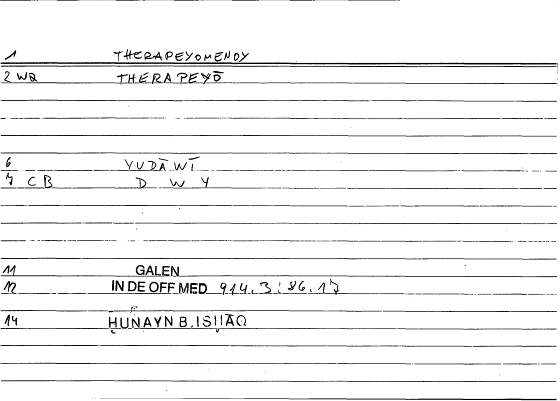 1 THERAPEYOMENOY
2 WQ THERAPEYŌ
6 YUDĀWĪ
7 CB D W Y
11 GALEN
12 IN DE OFF MED 914.3:86.17
14 ḤUNAYN B. ISḤĀQ